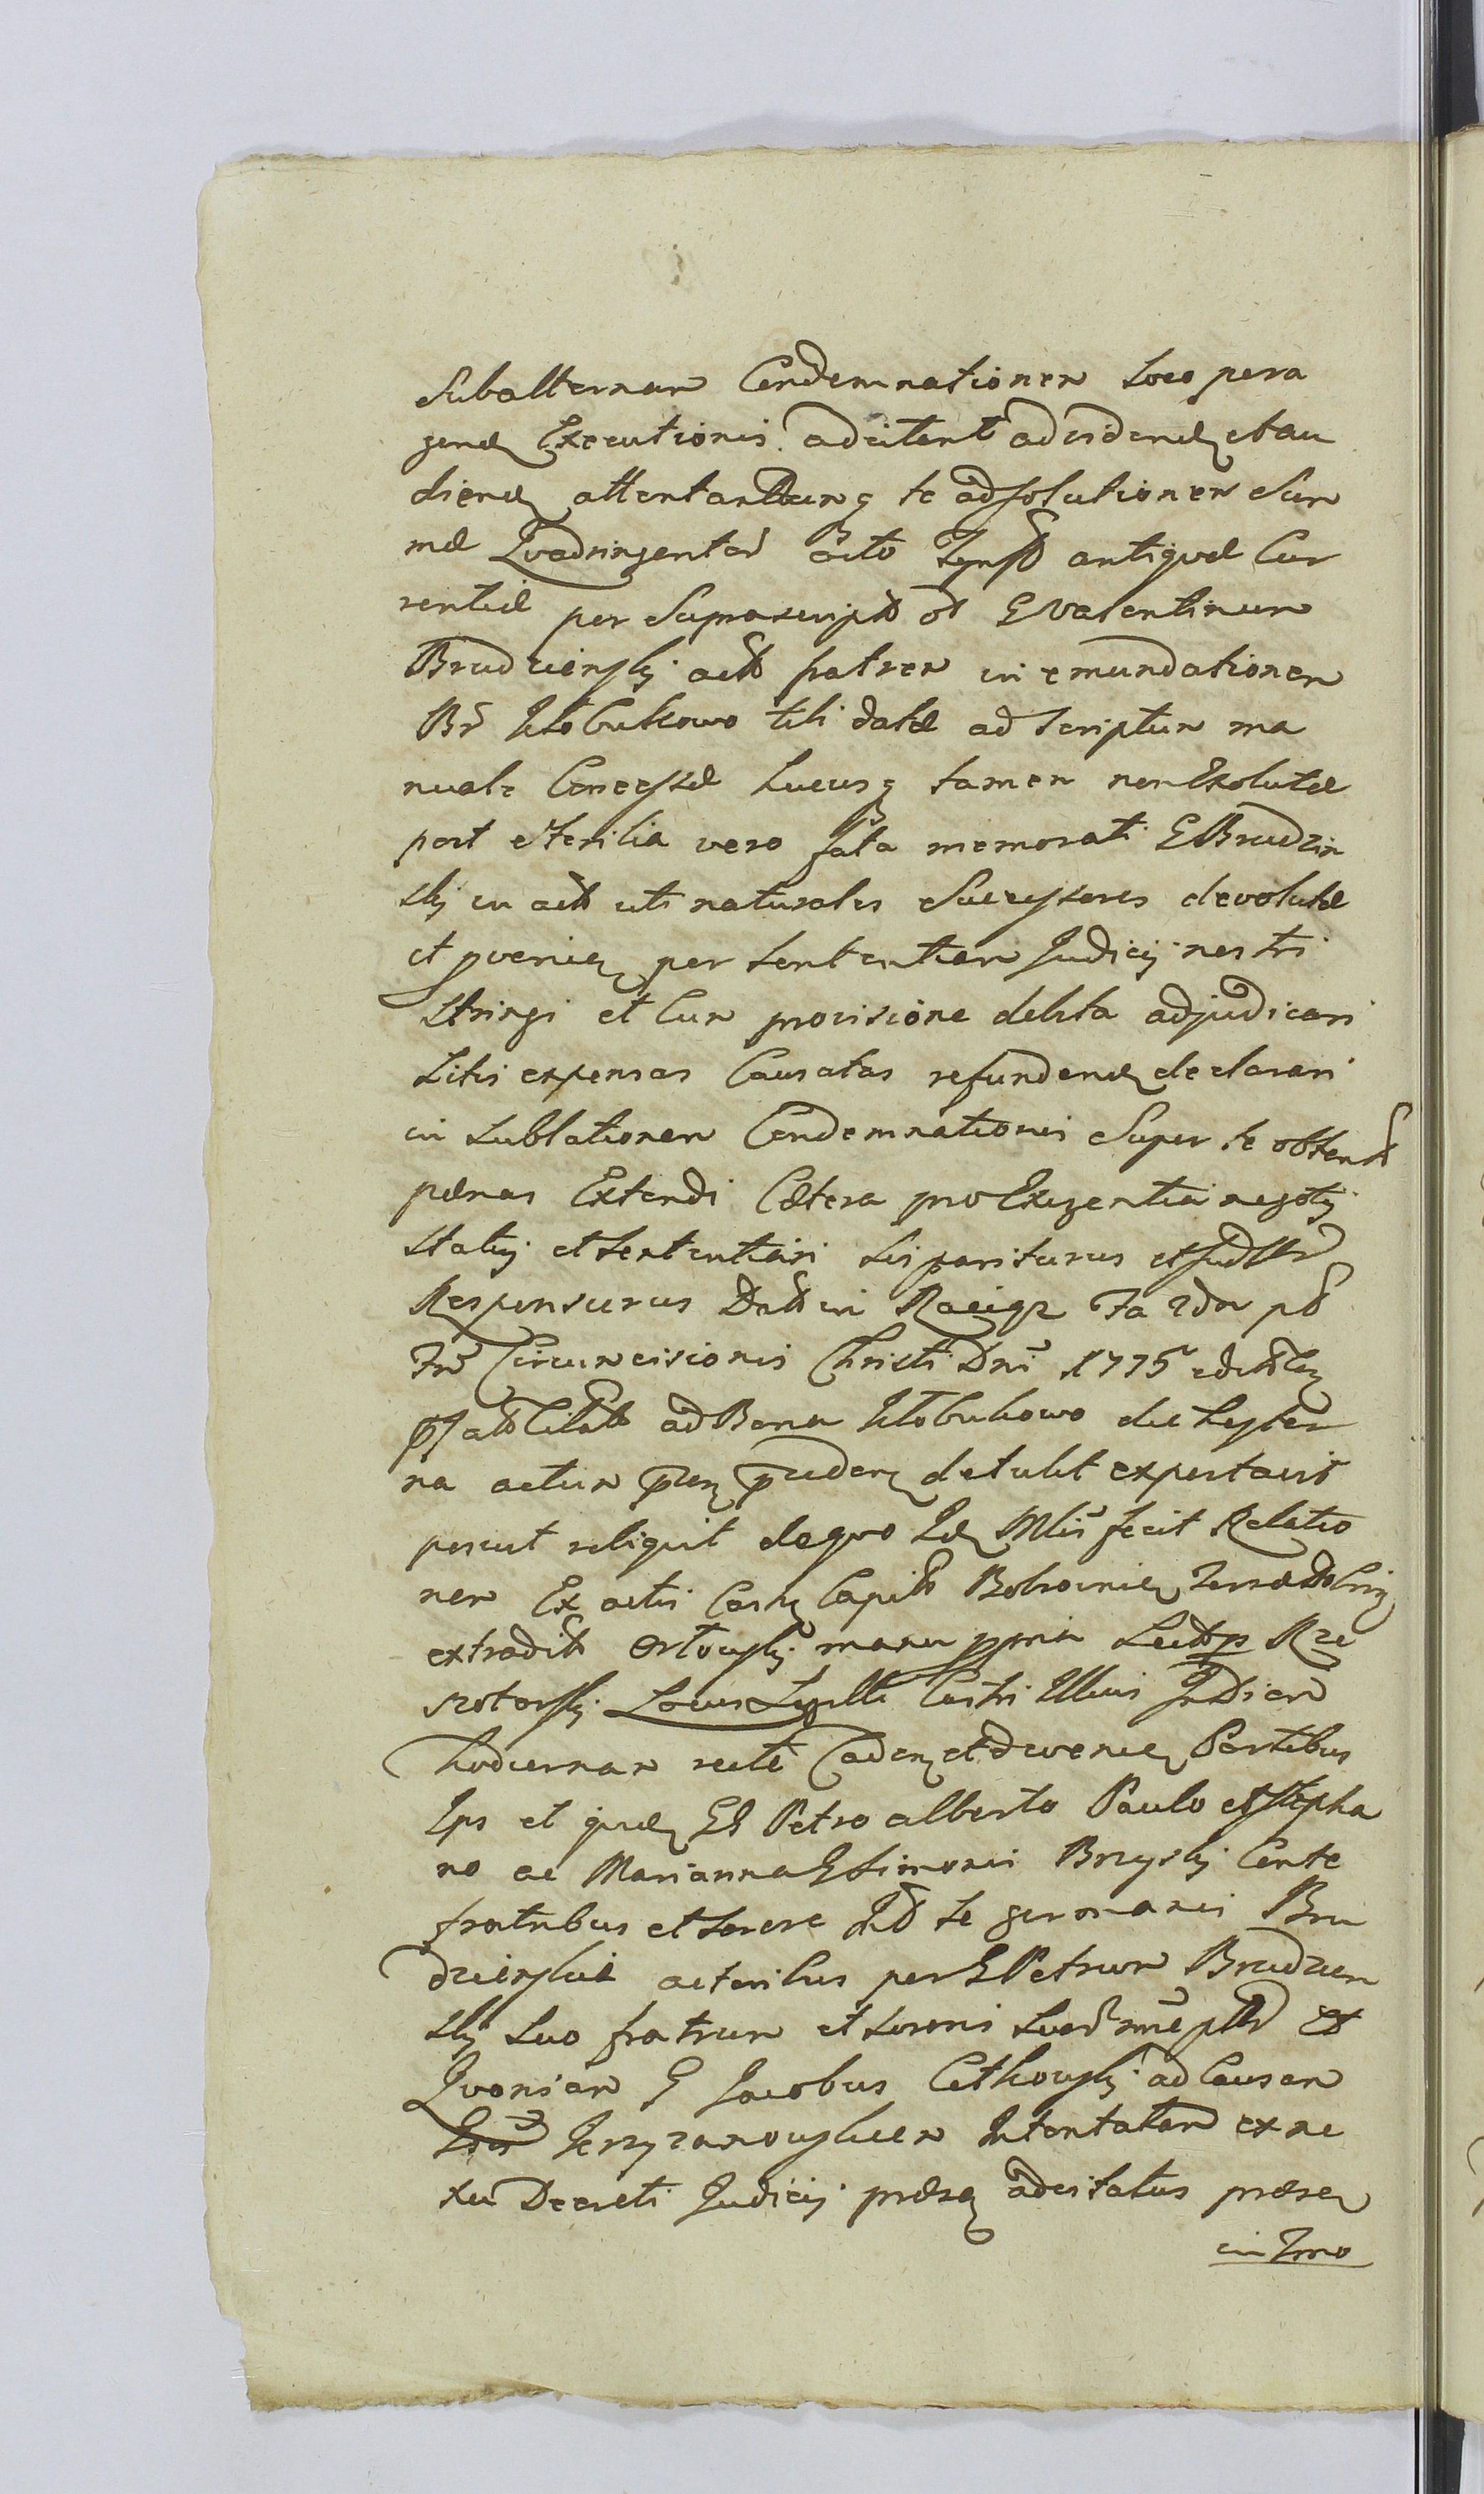 Subalternam Condemnationem loco pera
gend Executionis adcitent ad vidend et au
diend attentandumq te ad solutionem Sum
mæ Quadringentor acto antiquæ Cur
rentiæ per Suprascript ol G Valentinum
Brudzienskij act patrem in emundationem
Br Kłobukowo tibi datæ ad scriptum ma
nuale Concessæ hucusq tamen non Exolutæ
post sterilia vero fata memorati G Brudzin
skij in act uti naturales Successores devolutæ
et pvenien per sententiam Judicij nostri
stringi et Cum provisione debita adjudicari
Litis expensas Causatas refundend declarari
in sublationem Condemnationis Super te obtent
pænas Extendi Cætera pro Exigentia negotij
statuj et sententiari sis pariturus et
Responsurus Datt in Raciąz Fa 2da pt
Fm Circumcisionis Christi Dni 1775
ad Bona Kłobukowo die hester
na actum detulit expertavit
posuit reliquit de quo Id Mlis fecit Relatio
nem Ex actis Castr Capit Bobrownicen Terræ Dobrin
extradit Ortowskij manu ppria Lect p Rze
szotarskij Locus Sigilli Castri Illius In Diem
hodiernam recte Caden et devenien Partibus
Ips et quid GG Petro Alberto Paulo et Stepha
no ac Marianna G Simonis Brzyskj Conte
fratribus et sorore Int se germanis Bru
dzienskie actoribus per G Petrum Brudzien
skij suo fratrum et sororis suor nne pttr Et
Quoniam G Jacobus Cetkowskj ad Causam
Jerzyzanowskiem Intentatam ex ne
xu Decreti Judicij præsen adcitatus præsen
in Fmo